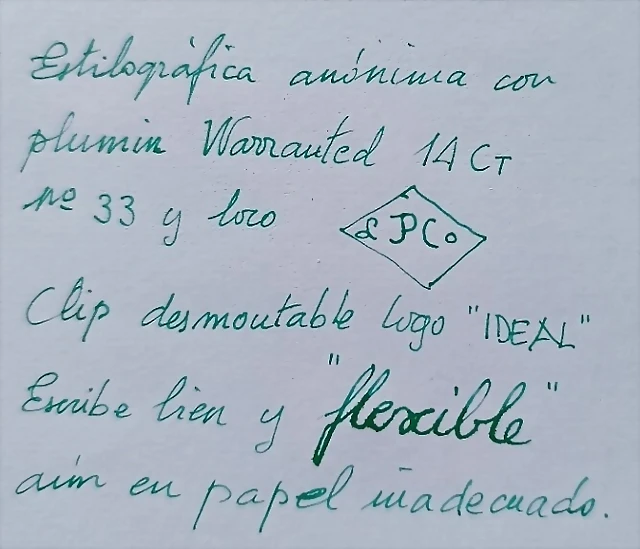 Estilográfica anónima con
plumin Warranted 14 CT
nº 33 y loco
& P Co
Clip desmontable logo "IDEAL"
Escribe bien y "flexible"
aún en papel inadecuado.